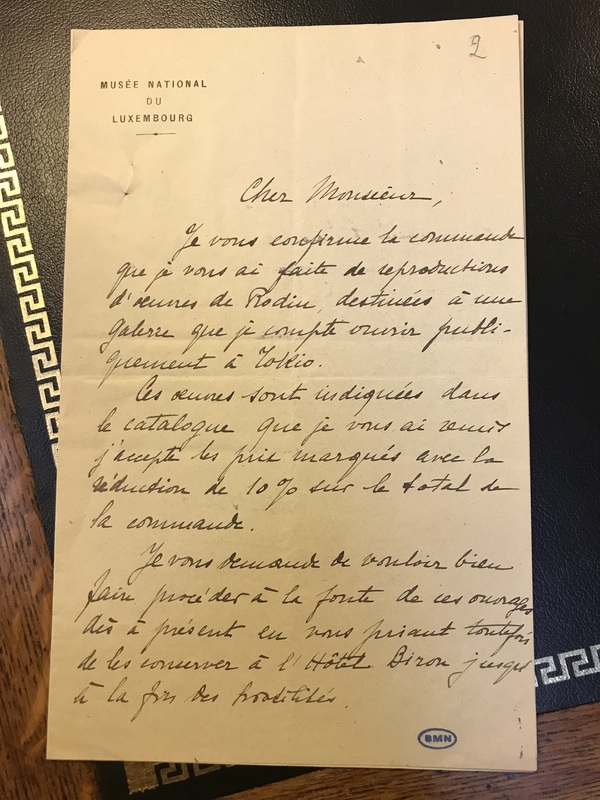 2
MUSÉE NATIONAL
DU
LUXEMBOURG
Cher Monsieur,
Je vous confirme la commande
que je vous ai faite de reproductions
d'œuvres de Rodin, destinées à une
galerie que je compte ouvrir publi-
quement à Tokio.
Ces œuvres sont indiquées dans
le catalogue que je vous ai remis
j'accepte les prix marqués avec la
réduction de 10% sur le total de
la commande.
Je vous demande de vouloir bien
faire procéder à la fonte de ces ouvrages
dès à présent en vous priant toutefois
de les conserver à l'Hôtel Biron jusqu'
à la fin des hostilités.
BMN